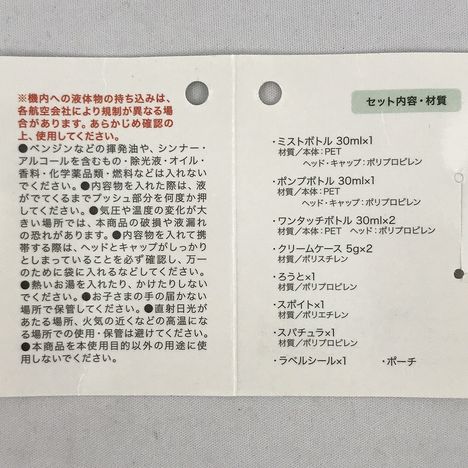 ※機内への液体物の持ち込みは、
各航空会社により規制が異なる場
合があります。あらかじめ確認の
上、使用してください。
●ベンジンなどの揮発油や、シンナー・
アルコールを含むもの・除光液・オイル・
香料・化学薬品類・燃料などは入れない
でください。●内容物を入れた際は、液
がでてくるまでプッシュ部分を何度か押
してください。●気圧や温度の変化が大
きい場所では、本商品の破損や液漏れ
の恐れがあります。●内容物を入れて携
帯する際は、ヘッドとキャップがしっかり
としまっていることを必ず確認し、万一
のために袋に入れるなどしてください。
●熱いお湯を入れたり、かけたりしない
でください。●お子さまの手の届かない
場所で保管してください。●直射日光が
あたる場所、火気の近くなどの高温にな
る場所での使用・保管は避けてください。
●本商品を本使用目的以外の用途に使
用しないでください。
セット内容・材質
・ミストボトル 30ml×1
材質／本体：PET
ヘッド・キャップ：ポリプロピレン
・ポンプボトル 30ml×1
材質／本体：PET
ヘッド・キャップ：ポリプロピレン
・ワンタッチボトル 30ml×2
材質／本体：PET ヘッド：ポリプロピレン
・クリームケース 5g×2
材質／ポリスチレン
・ろうと×1
材質／ポリプロピレン
・スポイト×1
材質／ポリエチレン
・スパチュラ×1
材質／ポリプロピレン
・ラベルシール×1 ・ポーチ